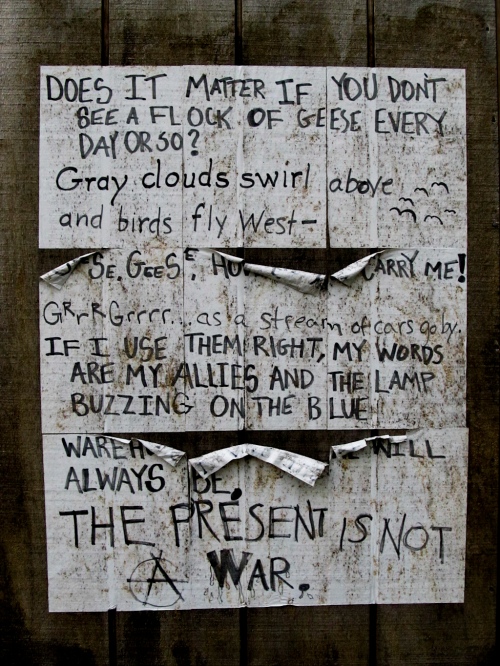 DOES IT MATTER IF YOU DONT
SEE A FLOCK OF GEESE EVERY
DAY OR SO?
Gray clouds swirl above
and birds fly West-
GEESE, CARRY ME!
GRrRGrrrr...as a stream of cars go by.
IF I USE THEM RIGHT, MY WORDS
ARE MY ALLIES AND THE LAMP
BUZZING ON THE BLUE
WILL
ALWAYS BE.
THE PRESENT IS NOT
WAR.